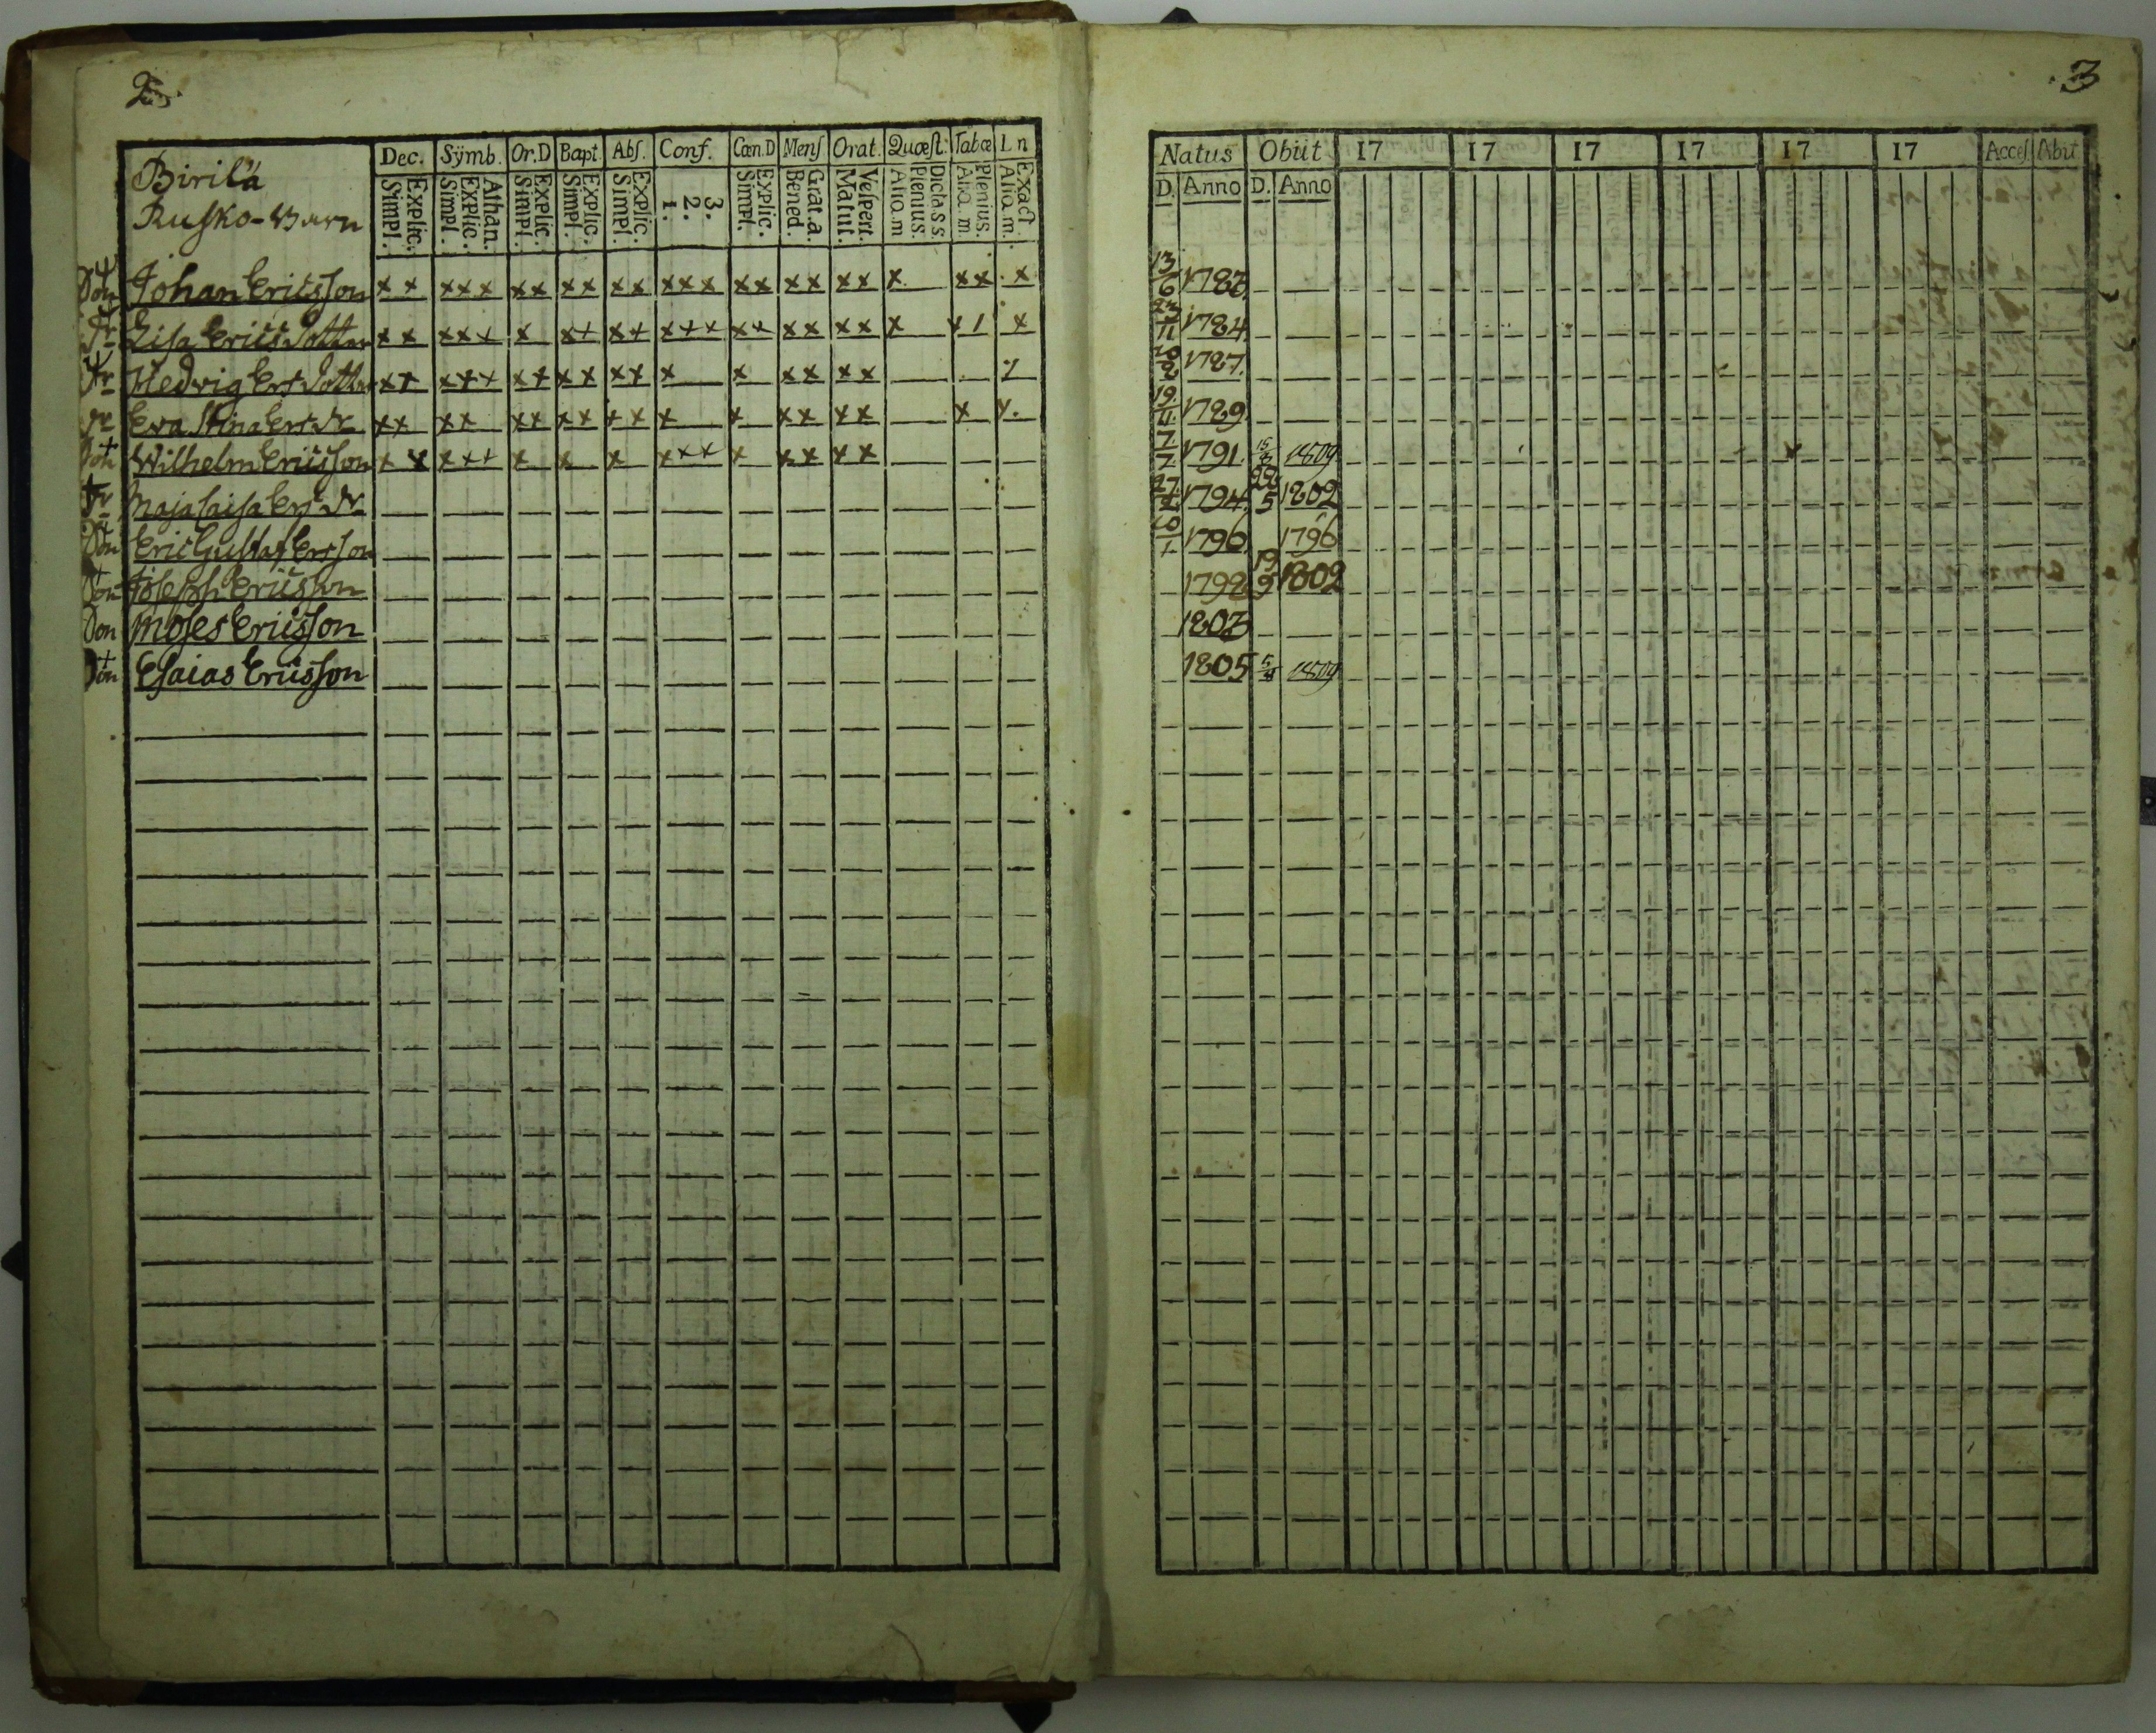 2
Dec. Sÿmb. Or.D Bapt. Abſ. Conf. Cœn.D Menſ Orat. Quæſt. Tabœ I n
Birilä
Ruſko-Barn
Simpl. Explic. Simpl. Explic. Athan. Simpl. Explic. Simpl. Explic. Simpl. Explic. 1. 2. 3. Simpl. Explic. Bened. Grat.a. Matut. Veſpert. Aliq.m Plenius. Dicta S.S. Aliq.m Plenius. Aliq.m. Exact
Son Johan Ericsſon x x x x x x x x x x x x x x x x x x x x x x x x
Dr Lisa Erics Dotter x x x x x x x x x x x x x x x x x x x x x
Dr Hedvig Ers Dotter x x x x x x x x x x x x x x x x x
Dr Eva Stina Ers Dr x x x x x x x x x x x x x x x x x
Son Wilhelm Ericsſon x x x x x x x x x x x x x x x x
Dr Maja Caisa Ers Dr
Son Eric Gustaf Ersſon
Son Joseph Ericsson
Son Moses Ericsſon
Son Esaias Ericsſon
3
Natus Obiit 17 17 17 17 17 17 Acceſ. Abiit
D. Anno D. Anno
13/6 1783
23/11 1784
1787
19 1789
7/7 1791 1809
27 1794 22/5 1802
10/1 1796 1796
1798 19/9 1802
1803
1805 1809